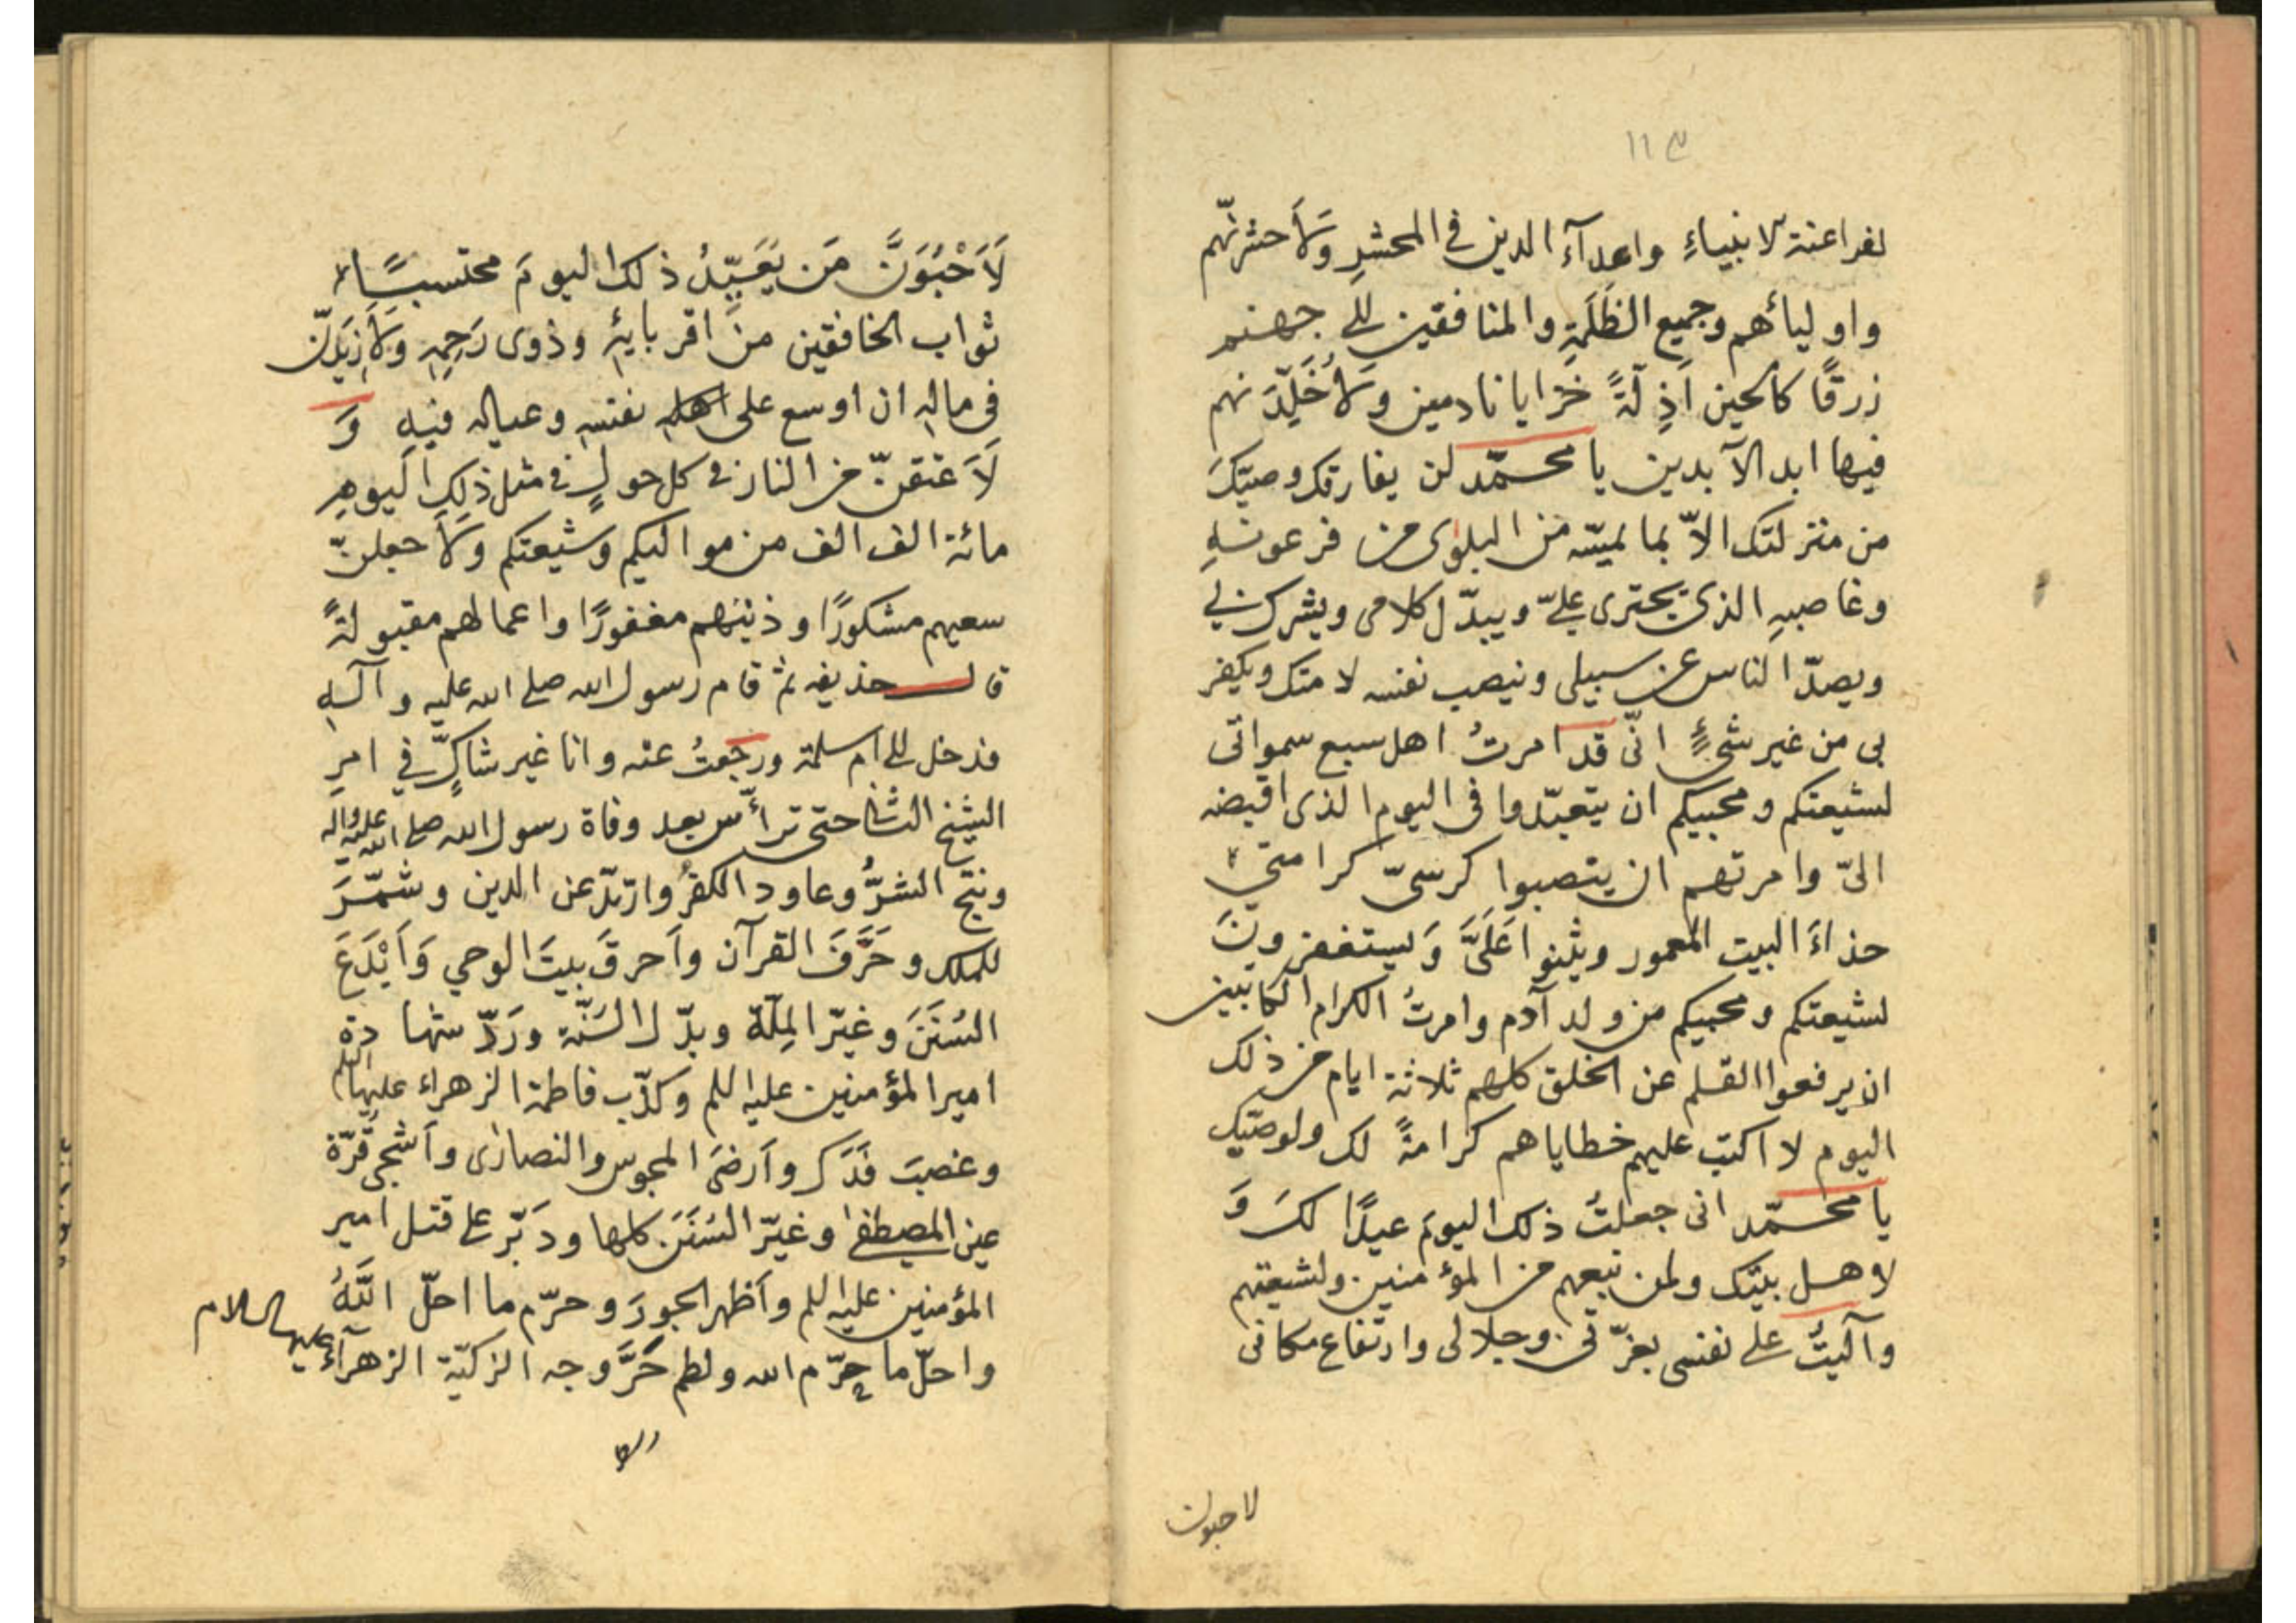 ١١٣
لفراعنة لانبياءِ واعدآءَ الدين فى المحشرِ وَلَأحشرنّهم
واوليائهم وجميع الظَلَمَةِ والمنافقين الى جهنم
زرقًا كالحين اَذِلّةً خزايا نادمين وَلَأُخَلِّدَنهم
فيها ابد الآبدين يا محمّد لن يفارقك وصيّكَ
من منزلتك الّا بما يمسّه من البلوى من فرعونهِ
وغاصبهِ الذى يجترى علىّ ويبدّل كلامى ويشرك بى
ويصدّ الناس عن سبيلى وينصب نفسه لامتك ويكفر
بى من غير شىءٍ انّى قد امرتُ اهل سبع سمواتى
لشيعتكم ومحبيكم ان يتعبّدوا فى اليوم الذى اقبضه
الىّ وامرتهم ان ينصبوا كرسىّ كرامتى
حذاءَ البيت المعمور ويثنوا عَلَىَّ وَيستغفرونَ
لشيعتكم ومحبيكم من ولد آدم وامرتُ الكرام الكاتبين
ان يرفعوا القلم عن الخلق كلهم ثلاثة ايام من ذلك
اليوم لا اكتب عليهم خطاياهم كرامةً لك ولوصيّك
يا محمّد انى جعلتُ ذلك اليومَ عيدًا لكَ وَ
لاهل بيتك ولمن تبعهم من المؤمنين ولشيعتهم
وآليتُ على نفسى بعزّتى وجلالى وارتفاع مكانى
لاحبون
لَاَحْبُوَنَّ مَن يُعَيِّدُ ذلك اليومَ محتسبًا
ثواب الخافقين من اقربايهِ وذوى رَحِمِهِ وَلَأزيدَنّ
فى مالهِ ان اوسع على نفسهِ وعياله فيهِ وَ
لَاَعتقنّ من النار فى كل حولٍ فى مثل ذلك اليومِ
مائة الف الف من مواليكم وشيعتكم وَلَأجعلنّ
سعيهم مشكورًا وذنبهم مغفورًا واعمالهم مقبولةً
قال حذيفه ثم قام رسول الله صلى الله عليه وآلهِ
فدخل الى ام سلمة ورجعتُ عنه وانا غير شاكٍّ فى امرِ
الشيخ الثانى حتى ترأّس بعد وفاة رسول الله صلى الله عليه واله
ونتج الشرُّ وعاود الكفرُ وارتدّ عن الدين وشمّرَ
للملك وحَرَّفَ القرآن واَحرقَ بيتَ الوحي وَاَبْدَعَ
السُنَنَ وغيّر المِلّة وبدّل السُنّة ورَدّ شهادة
امير المؤمنين عليه اللم وكذّب فاطمة الزهراء عليها اللم
وغصبَ فَدَكَ واَرضَى المجوس والنصارى واَشجى قُرّة
عين المصطفى وغيّر السُنَنَ كلها ودَبّر على قتل امير
المؤمنين عليه اللم واَظهر الجورَ وحرّم ما احلّ اللّهُ
واحلّ ما حرّم الله ولطم حَرَّ وجه الزكيّة الزهرآءِ عليها السلام